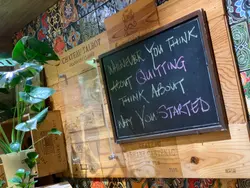 CHATEAU TALBOT
WHENEVER YOU THINK
ABOUT QUITTING
THINK ABOUT
WHY YOU STARTED